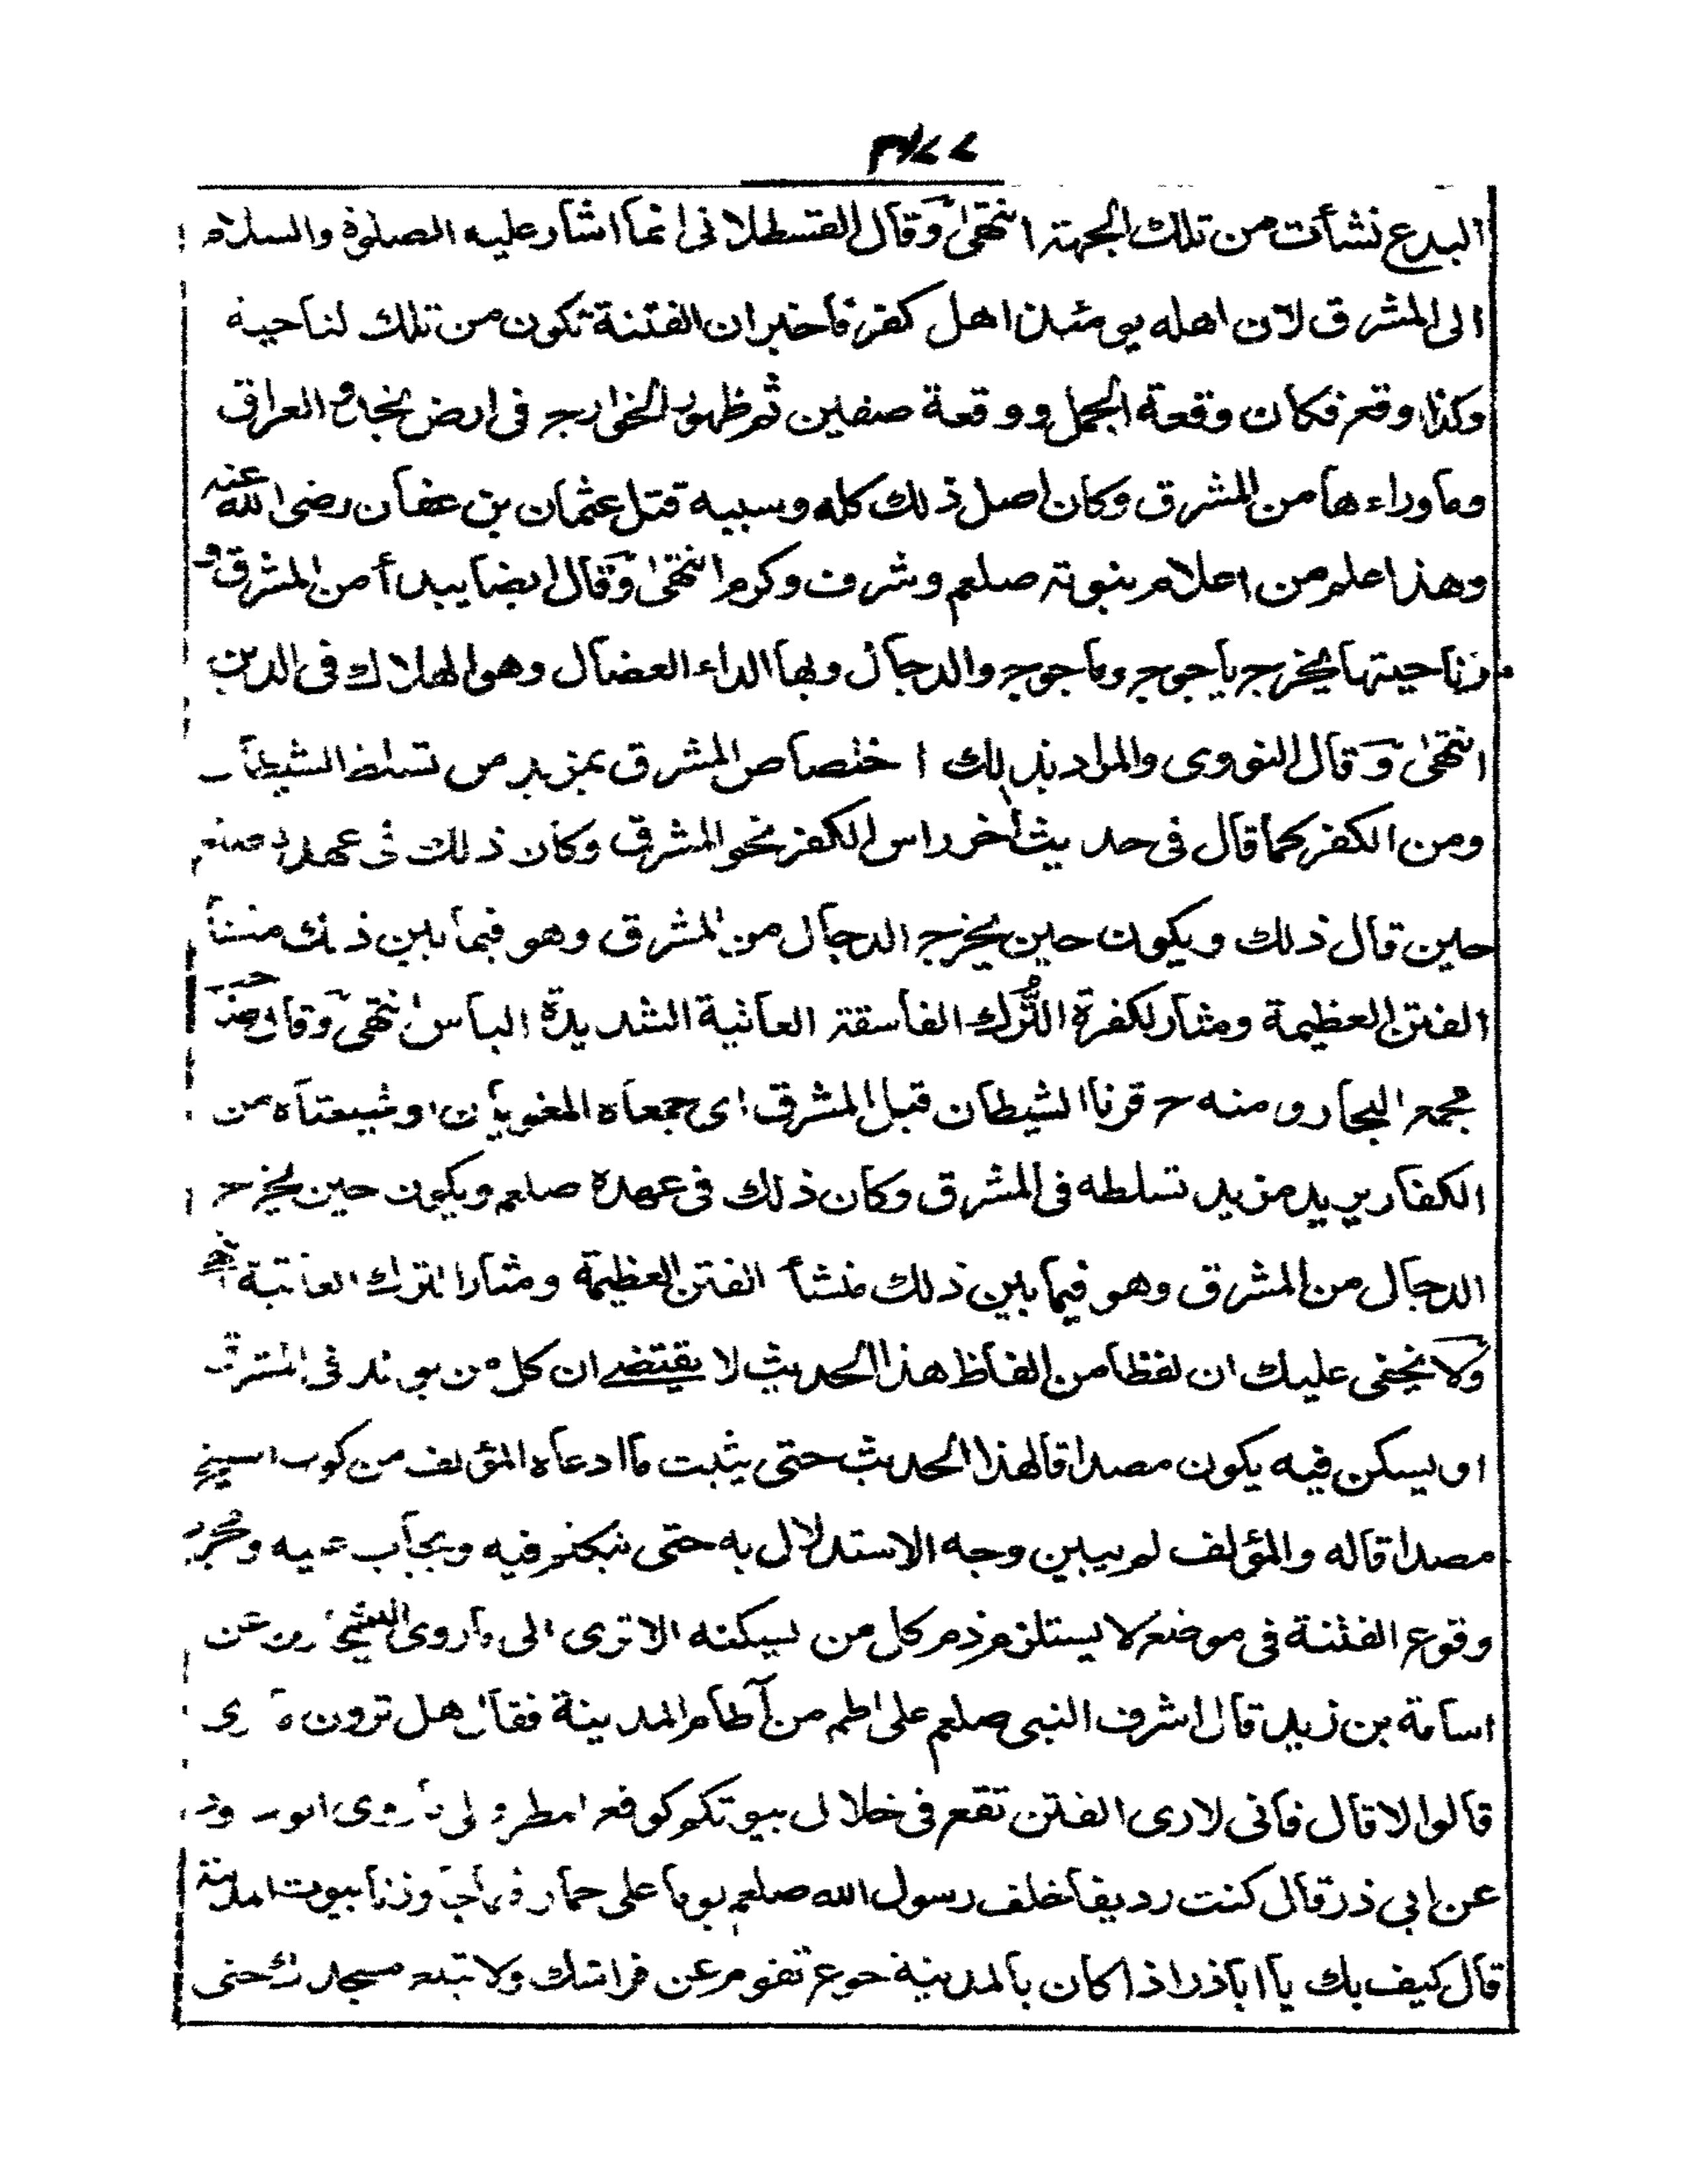 البدع نشأت من تلك الجهة انتهى وقال القسطلانى انما اشار عليه الصلوة والسلام
الى المشرق لان اهله يومئذ اهل كفر فاخبران الفتنة تكون من تلك لناحية
وكذا وقع فكان وقعة الجمل ووقعة صفين ثم ظهور الخوارج فى ارض نجد و العراق
وما وراءها من المشرق وكان اصل ذلك كله وسببه قتل عثمان بن عفان رضى الله عنه
وهذا علم من اعلام نبوته صلعم وشرف وكرم انتهى وقال ايضا يبدأ من المشرق و
من ناحيتها يخرج ياجوج وماجوج والدجال وبها الداء العضال وهو الهلاك فى الدين
انتهى وقال النووى والمراد بذلك اختصاص المشرق بمزيد من تسلط الشيطان
ومن الكفر كما قال فى حديث أخر راس الكفر نحو المشرق وكان ذلك فى عهده صلعم
حين قال ذلك ويكون حين يخرج الدجال من المشرق وهو فيما بين ذلك منشأ
الفتن العظيمة ومثار لكفرة التُّرك الفاسقة العاتية الشديدة الباس انتهى وقال
مجمع البحار ومنه ح قرنا الشيطان قبل المشرق اى جمعاه المغويان او شيعتاه من
الكفار يريد مزيد تسلطه فى المشرق وكان ذلك فى عهده صلعم ويكون حين يخرج
الدجال من المشرق وهو فيما بين ذلك منشأ الفتن العظيمة ومثار الترك العاتية
ولا يخفى عليك ان لفظا من الفاظ هذا الحديث لا يقتضے ان كل من يولد فى المشرق
او يسكن فيه يكون مصداقا لهذا الحديث حتى يثبت ما ادعاه المؤلف من كون الشيخ
مصداقا له والمؤلف لم يبين وجه الاستدلال به حتى نتكلم فيه ويجاب عنه ومجرد
وقوع الفتنة فى موضع لا يستلزم ذم كل من يسكنه الا ترى الى ما روى الشيخان عن
اسامة بن زيد قال اشرف النبى صلعم على اطم من آطام المدينة فقال هل ترون ما ارى
قالوا لا قال فانى لارى الفتن تقع فى خلال بيوتكم كوقع المطر والى ما روى ابو داود
عن ابى ذر قال كنت رديفا خلف رسول الله صلعم يوما على حمار فلما جاوزنا بيوت المدينة
قال كيف بك يا اباذر اذا كان بالمدينة جوع تقوم عن فراشك ولا تبلغ مسجدك حتى